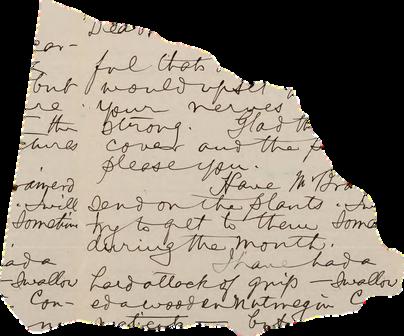 Dear
ear- ful that's
but would upset
re your nerves
the strong. Glad th
ctures cover and the p
please you.
ainerd Have Mr Bra
I will send on the plants I wi
Sometim try to get to them Some
during the month.
ad a I have had a
Swallow hard attack of grip — Swallow
Con- ed a wooden nutmeg in C